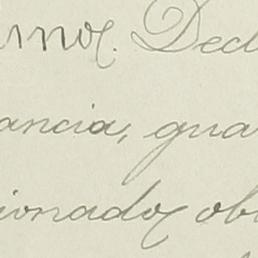 rnos. Decl
ancia, gua
ionados ob